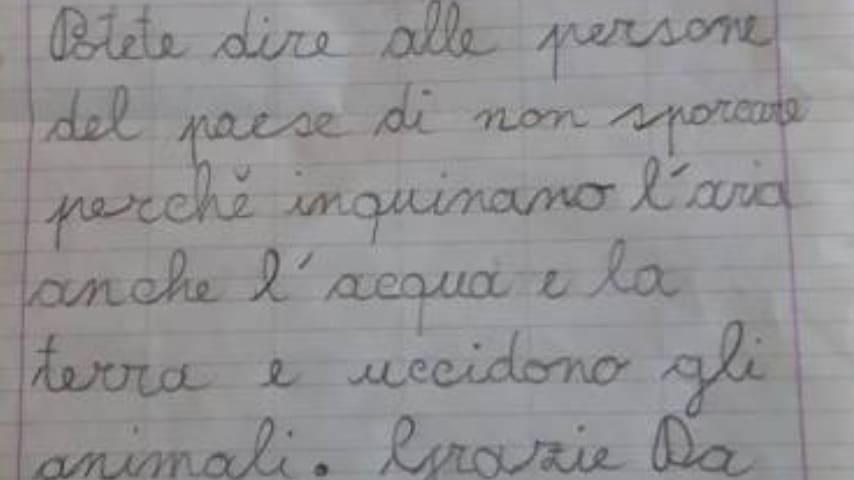 Potete dire alle persone
del paese di non sporcare
perchè inquinano l'aria
anche l'acqua e la
terra e uccidono gli
animali. Grazie Da